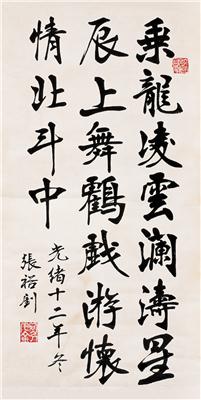 乘龍凌雲瀾濤星
辰上舞鸖戲游懷
情北斗中
光緒十二年冬
張裕釗